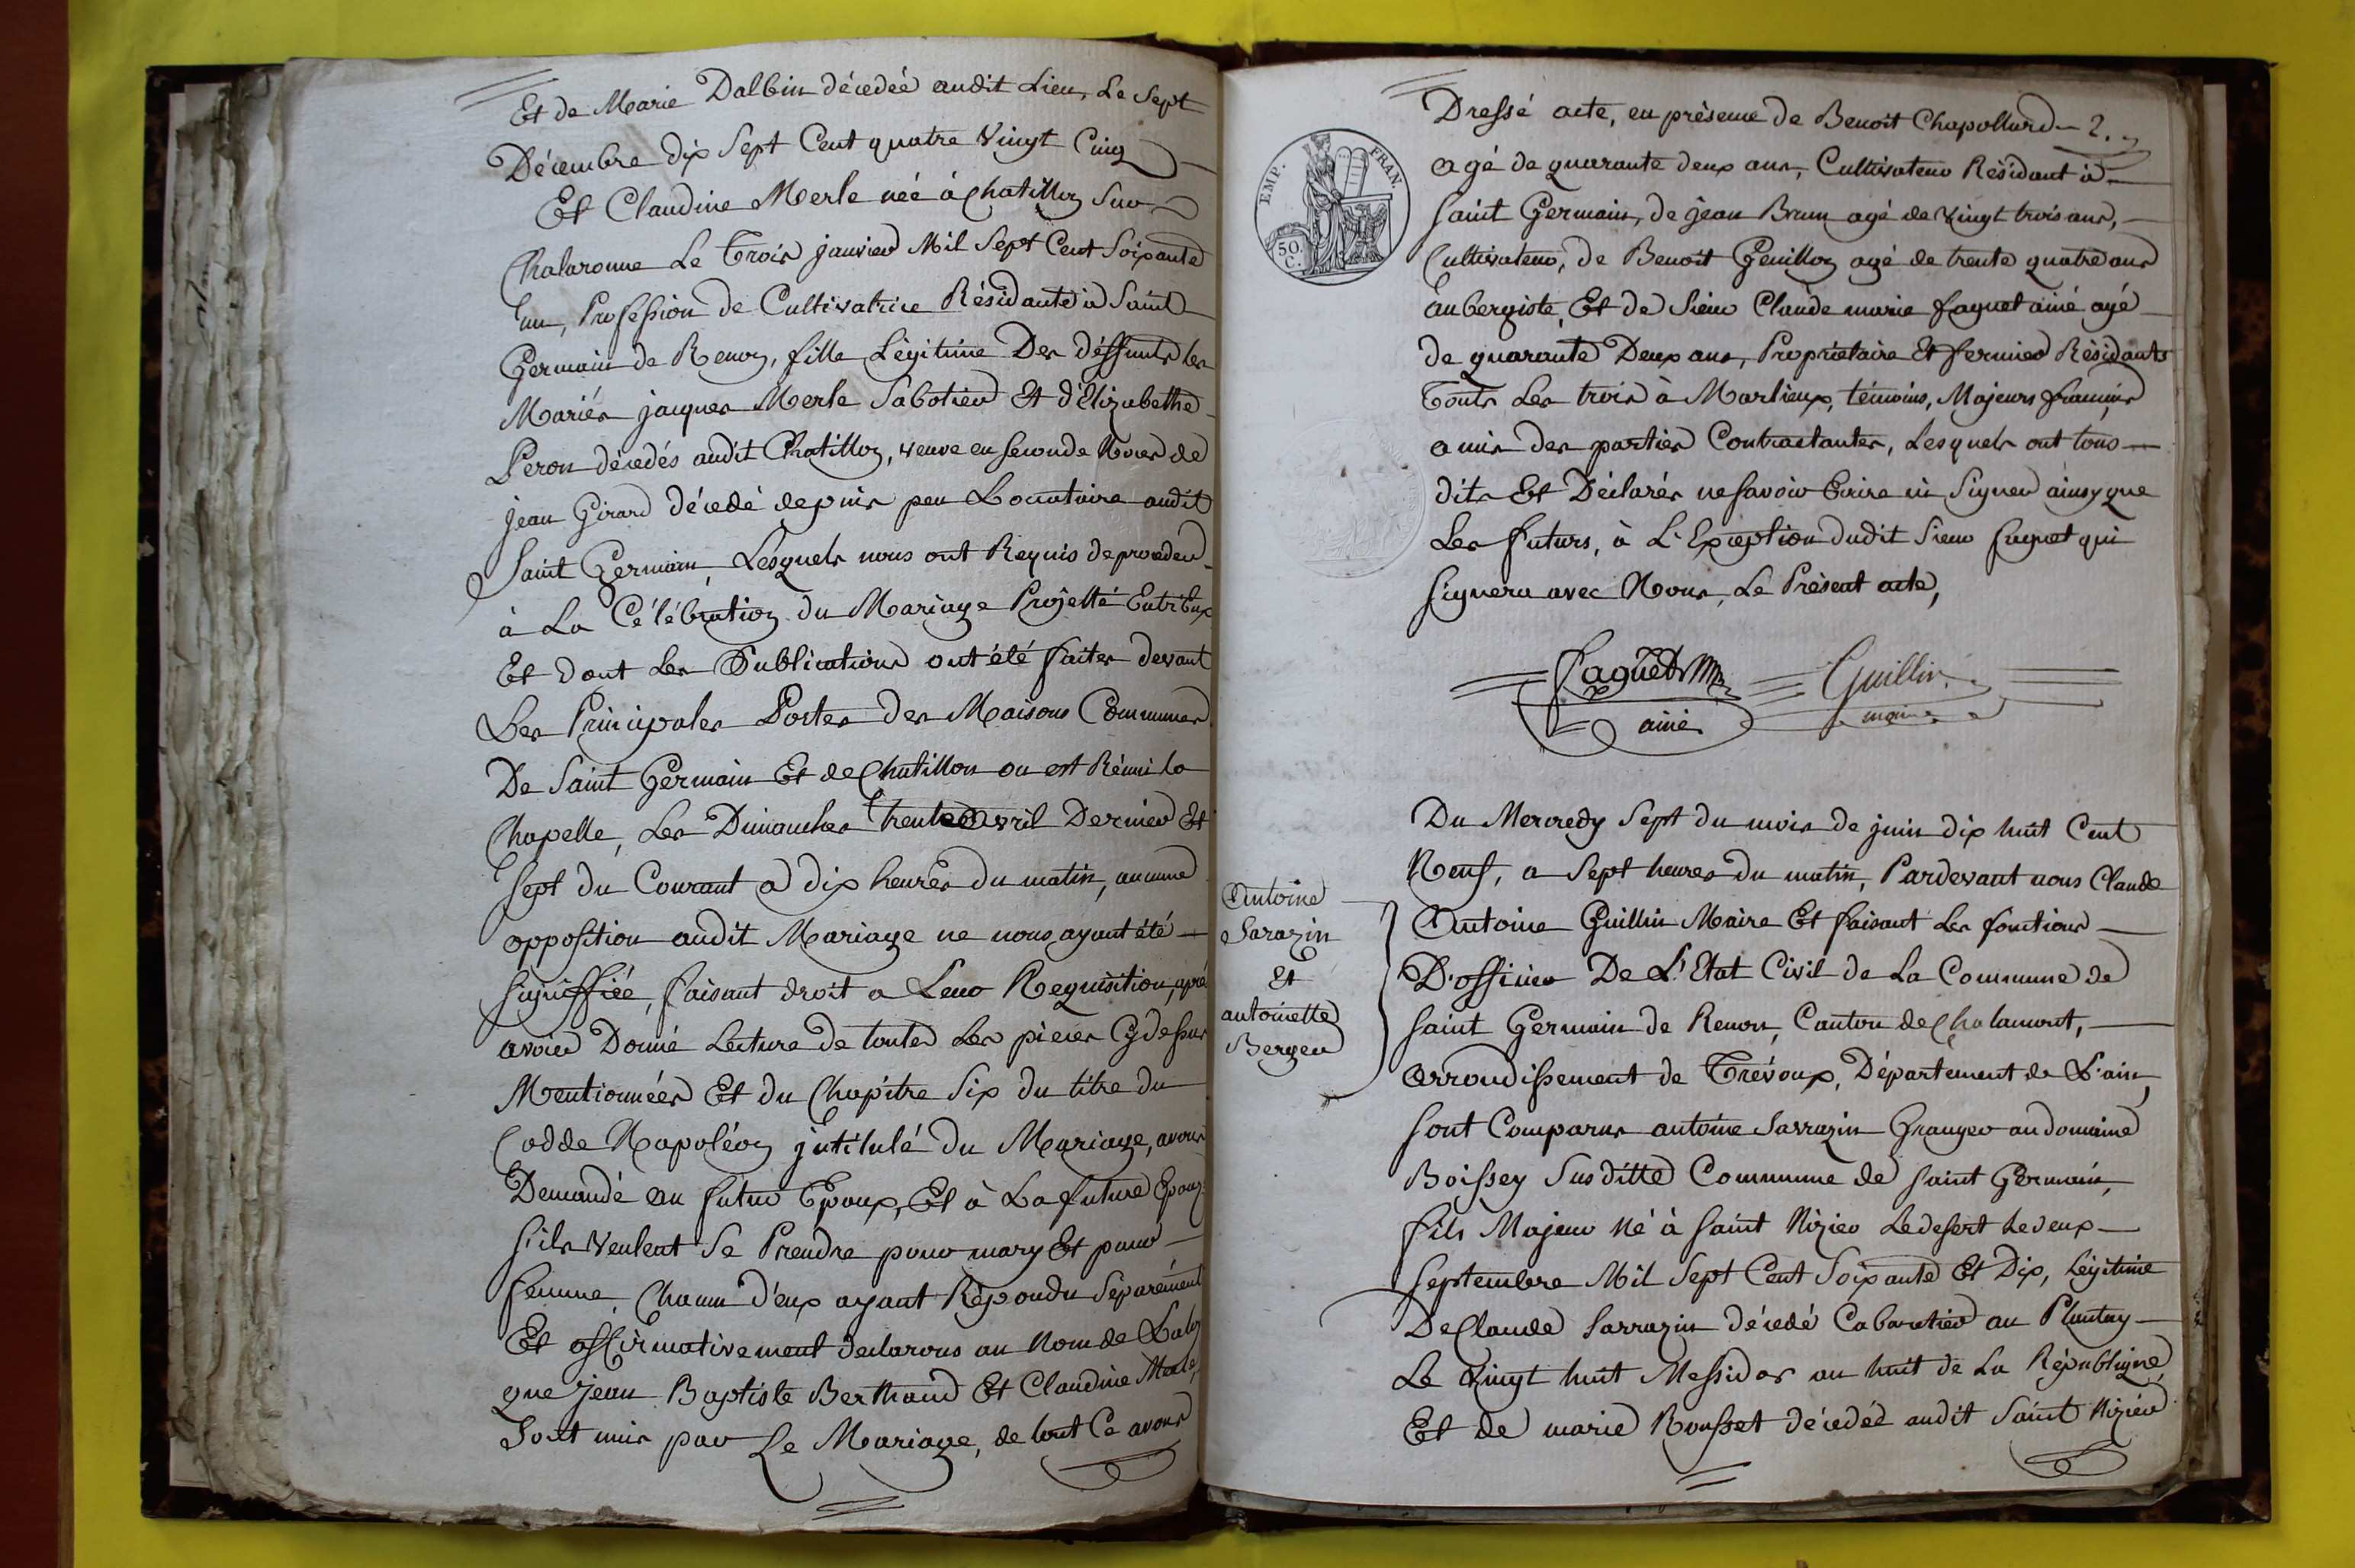 Et de Marie Dalbin décedéé audit Lieu, Le Sept
Décembre dix Sept Cent quatre Vingt Cinq
Et Claudine Merle néé à Chatillon Sur
Chalaronne Le Trois janvier Mil Sept Cent Soixante
un, Profession de Cultivatrice Résidante à Saint
Germain de Renon, fille Légitime Des déffunts les
Mariés jacques Merle Sabotier Et d'Elizabethe
Peron décedés audit Chatillon, veuve en Seconde Noces de
jean Girard décedé depuis peu Locataire audit
Saint Germain, Lesquels nous ont Requis de proceder
à La Célébration du Mariage Projetté Entr'Eux
Et dont Les Publications ont été faites devant
Les Principales Portes des Maisons Communes
De Saint Germain Et de Chatillon ou est Réuni la
Chapelle, Les Dimanches trente avril Dernier Et
Sept du Courant a dix heures du matin, aucune
opposition audit Mariage ne nous ayant été
signiffiéé, faisant droit a Leur Requisition, après
avoir Donné Lecture de toutes Les pieces Cy dessus
Mentionnéés Et du Chapitre Six du titre du
Codde Napoléon jntitulé du Mariage, avons
Demandé au futur Epoux, Et à La future Epouze
s'ils Veulent Se Prendre pour mary Et pour
femme, Chacun d'eux ayant Répondu Séparément
Et affirmativement declarons au Nom de La Loy
que jean Baptiste Berthaud Et Claudine Merle,
Sont unis par Le Mariage, de tout Ce avons
EMP. FRAN.
50. C.
Dressé acte, en présence de Benoit Chapolland 2.
agé de quarante deux ans, Cultivateur Résidant à
Saint Germain, de jean Brun agé de Vingt trois ans,
Cultivateur, de Benoit Genillon agé de trente quatre ans
aubergiste, Et de Sieur Claude marie faguet ainé agé
de quarante Deux ans, Propriétaire Et fermier Résidants
Touts Les trois à Marlieux, témoins, Majeurs francais
amis des parties Contractantes, Lesquels ont tous
dits Et Déclarés ne savoir Ecrire ni Signer ainsy que
Les futurs, à L'Exception dudit Sieur faguet qui
signera avec Nous, Le Présent acte,
Faguet ainé
Guillin maire
Antoine
Sarazin
Et
antoinette
Berger
Du Mercredy Sept du mois de juin dix huit Cent
Neuf, a Sept heures du matin, Pardevant nous Claude
Antoine Guillin Maire Et faisant Les fonctions
D'officier De L'Etat Civil de La Commune de
Saint Germain de Renon, Canton de Chalamont,
arrondissement de Trévoux, Département de L'ain,
sont Comparus antoine Sarrazin Granger au domaine
Boissey Susditte Commune de Saint Germain,
fils Majeur Né à Saint Nizier Le desert Le deux
Septembre Mil Sept Cent Soixante Et Dix, Légitime
De Claude Sarrazin décedé Cabaretier au Plantay
Le Vingt huit Messidor an huit de La République,
Et de marie Rousset décedéé audit Saint Nizier